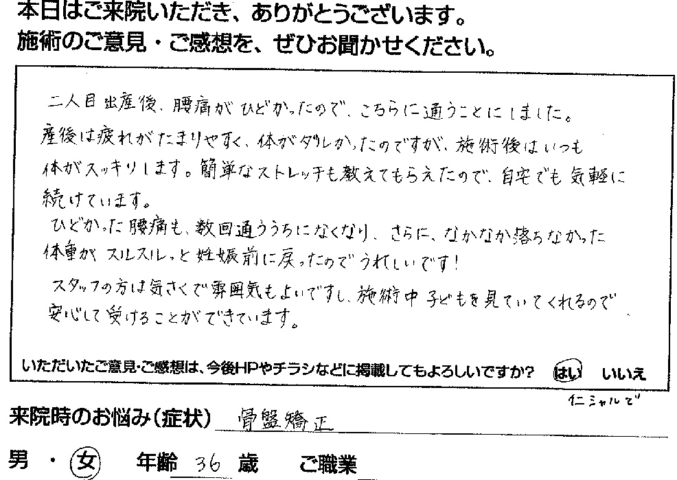 本日はご来院いただき、ありがとうございます。
施術のご意見・ご感想を、ぜひお聞かせください。
二人目出産後、腰痛がひどかったので、こちらに通うことにしました。
産後は疲れがたまりやすく、体がダルかったのですが、施術後はいつも
体がスッキリします。簡単なストレッチも教えてもらえたので、自宅でも気軽に
続けています。
ひどかった腰痛も、数回通ううちになくなり、さらに、なかなか落ちなかった
体重がスルスルっと妊娠前に戻ったのでうれしいです!
スタッフの方は気さくで雰囲気もよいですし、施術中子どもを見ていてくれるので
安心して受けることができています。
いただいたご意見・ご感想は、今後HPやチラシなどに掲載してもよろしいですか? はい いいえ
イニシャルで
来院時のお悩み(症状) 骨盤矯正
男 ・ 女 年齢 36 歳 ご職業